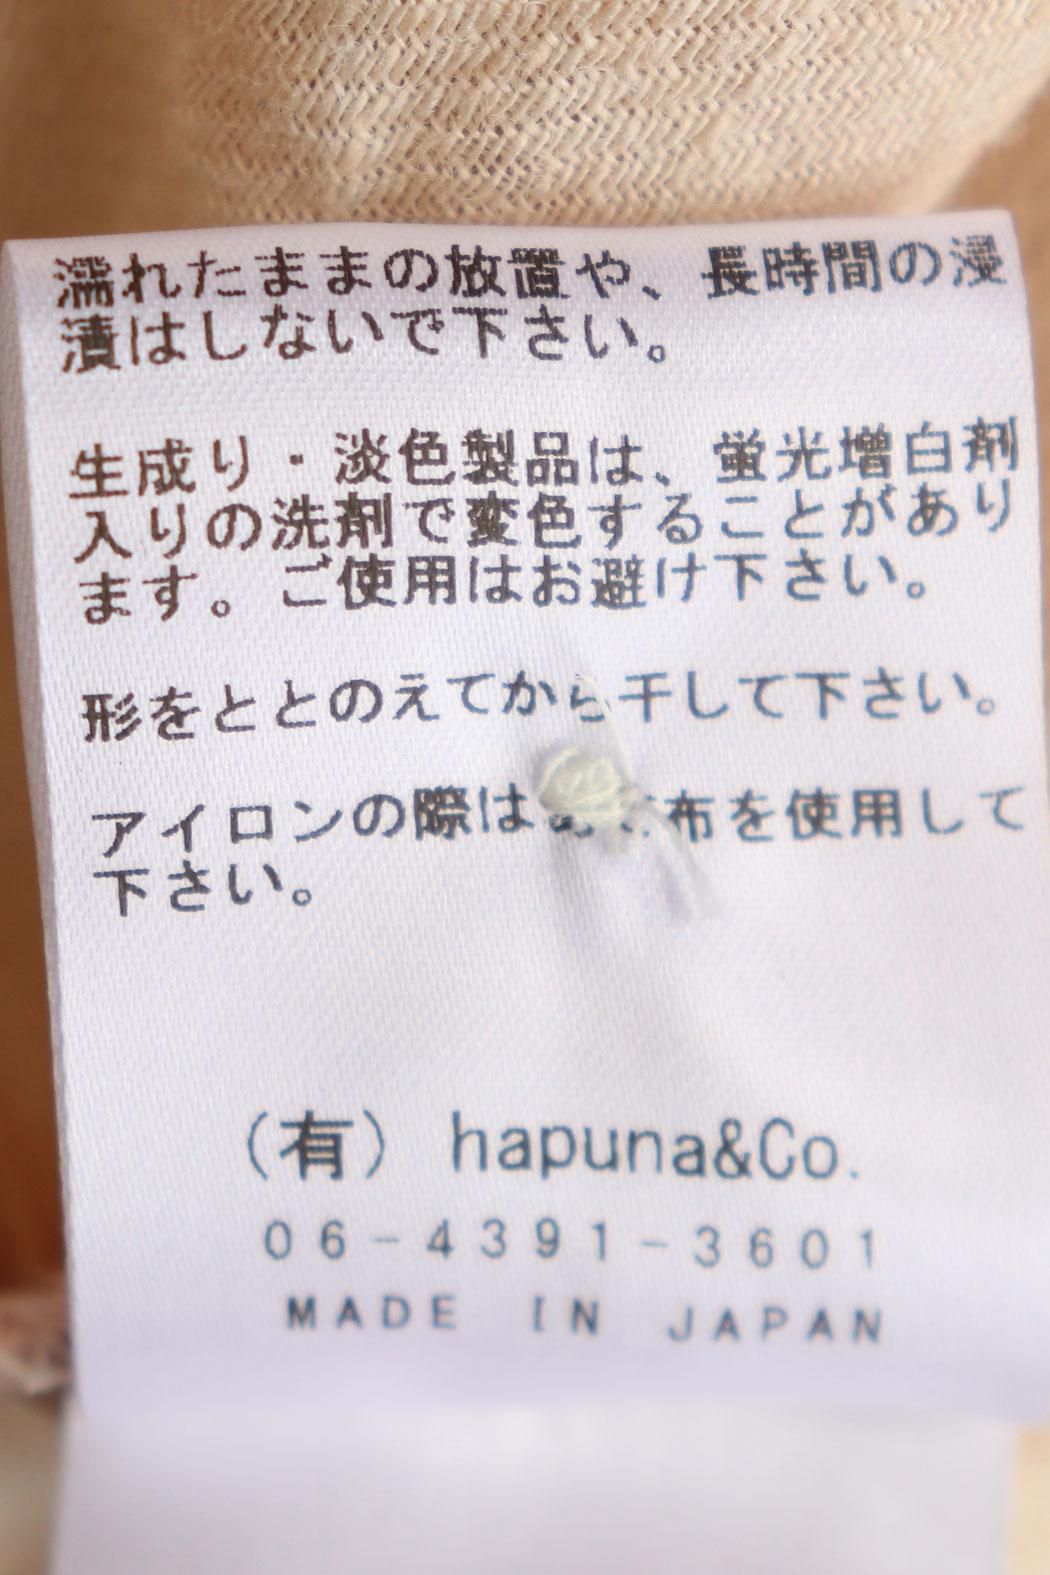 濡れたままの放置や、長時間の浸
漬はしないで下さい。
生成り・淡色製品は、蛍光増白剤
入りの洗剤で変色することがあり
ます。ご使用はお避け下さい。
形をととのえてから干して下さい。
アイロンの際は 布を使用して
下さい。
(有) hapuna&Co.
06-4391-3601
MADE IN JAPAN